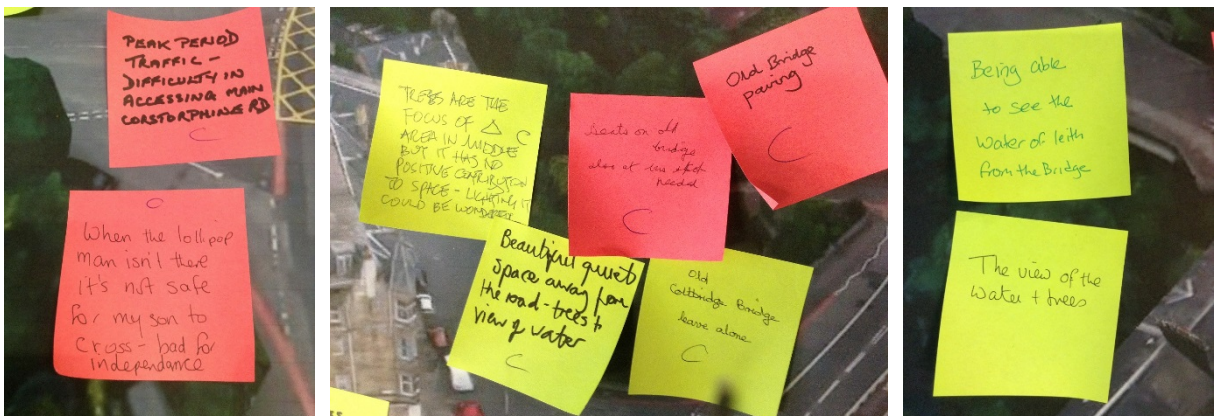 PEAK PERIOD
TRAFFIC -
DIFFICULTY IN
ACCESSING MAIN
CORSTORPHINE RD
C
C
When the lollipop
man isn't there
it's not safe
for my son to
cross - bad for
independance
TREES ARE THE
FOCUS OF △ C
AREA IN MIDDLE
BUT IT HAS NO
POSITIVE CONTRIBUTION
TO SPACE - LIGHTING IT
COULD BE WONDERFUL
Seats on old
bridge
also at
needed
C
Old Bridge
paving
C
Beautiful quiet
space away from
the road - trees to
view of water
C
Old
Coltbridge Bridge
leave alone
C
Being able
to see the
Water of Leith
from the Bridge
The view of the
Water + trees